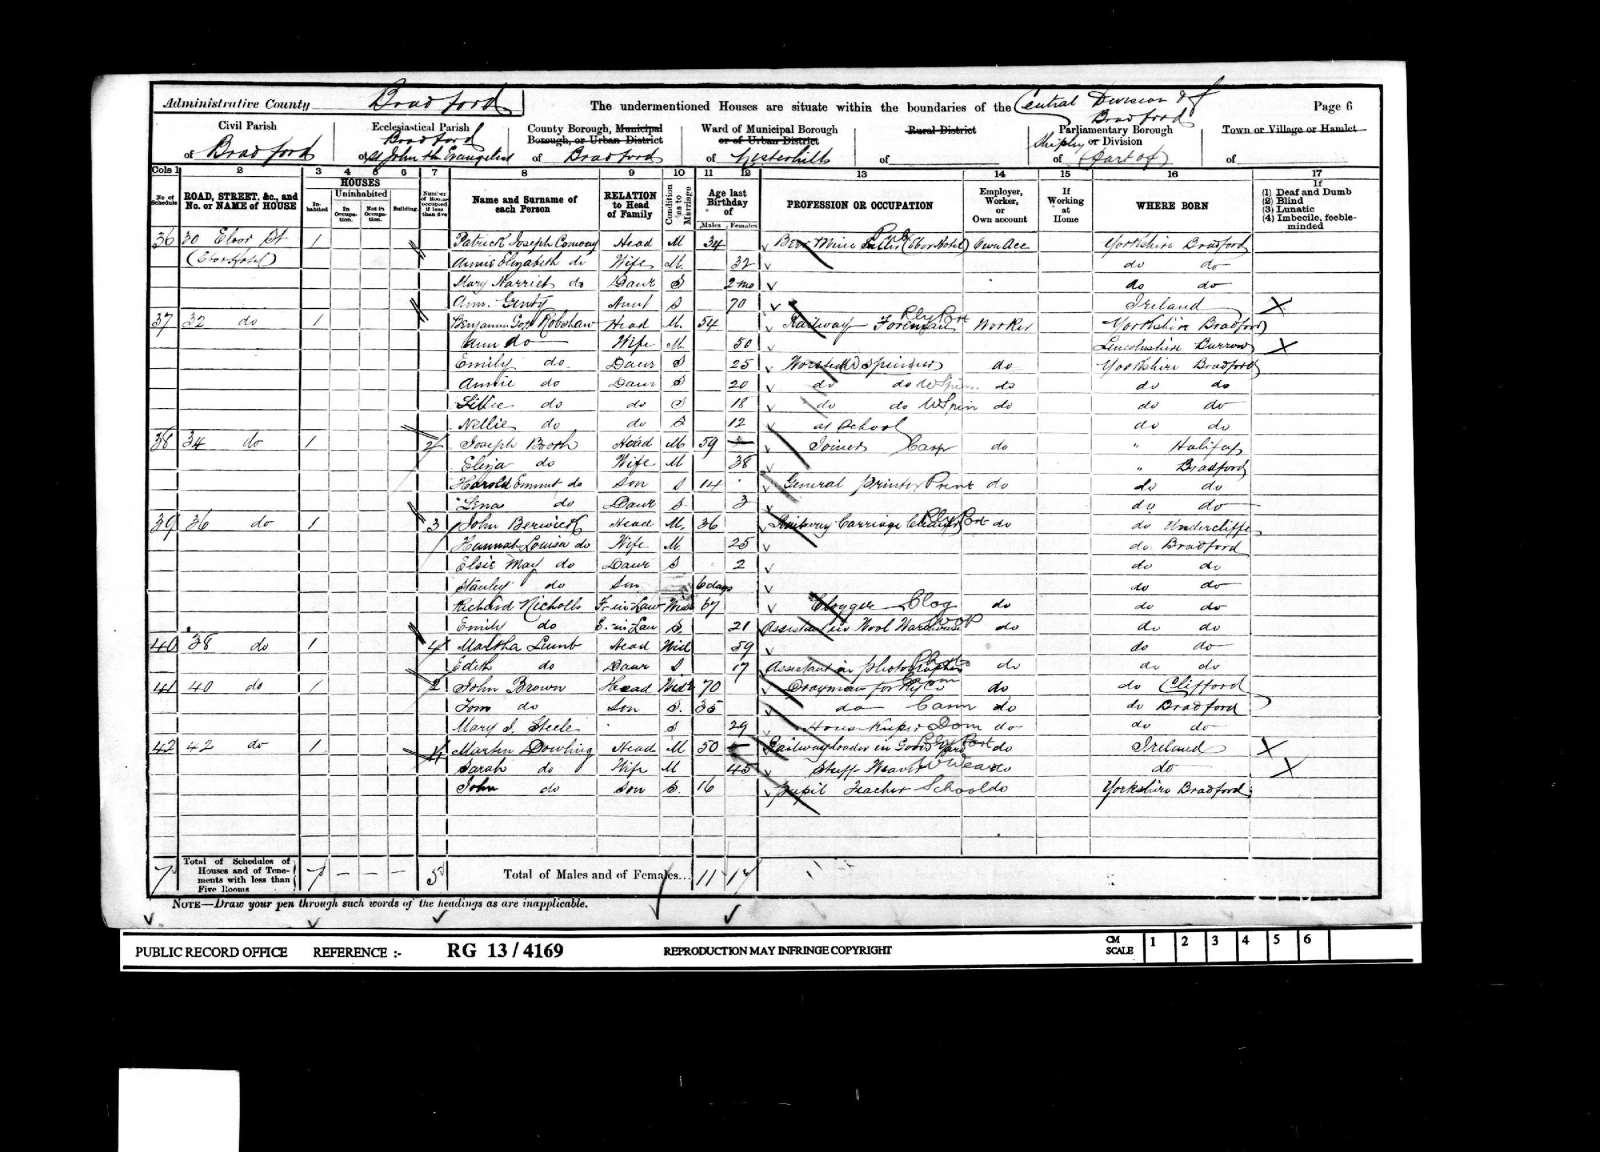 Administrative County Bradford The undermentioned Houses are situate within the boundaries of the Central Division of Bradford Page 6
Civil Parish Ecclesiastical Parish County Borough, Municipal Borough, or Urban District Ward of Municipal Borough or of Urban District Rural District Parliamentary Borough or Division Town or Village or Hamlet
of Bradford of Bradford St John the Evangelist of Bradford of of of Shipley (Part of) of
Cols 1 2 3 4 5 6 7 8 9 10 11 12 13 14 15 16 17
No of Schedule ROAD, STREET, &c., and No. or NAME of HOUSE HOUSES Inhabited Uninhabited In Occupation. Not in Occupation. Building. Number of Rooms occupied if less than five Name and Surname of each Person RELATION to Head of Family Condition as to Marriage Age last Birthday of Males Females PROFESSION OR OCCUPATION Employer, Worker, or Own account If Working at Home WHERE BORN If (1) Deaf and Dumb (2) Blind (3) Lunatic (4) Imbecile, feeble-minded
36 30 Ebor St 1 Patrick Joseph Conway Head M 34 Pub (Ebor Hotel) Own Acc Yorkshire Bradford
(Ebor Hotel) Annie Elizabeth do Wife M 32 do do
Mary Harriet do Daur S 2 mo do do
Ann S 70 Ireland X
37 32 do 1 Benjamin Robshaw Head M 54 Railway Foreman Rly Port Worker Yorkshire Bradford
Ann do Wife M 50 Lincolnshire Burrow X
Emily do Daur S 25 Worsted Spinner do Yorkshire Bradford
Annie do Daur S 20 do do W Spin do do do
Lillie do do S 18 do do W Spin do do do
Nellie do do S 12 at School do do
38 34 do 1 2 Joseph Booth Head M 59 Joiner Carp do " Halifax
Eliza do Wife M 38 " Bradford
Harold Emmit do Son S 14 General Printer Print do do do
Lena do Daur S 3 do do
39 36 do 1 3 John Berwick Head M 36 Railway Carriage Cleaner Rly Port do do Undercliffe
Hannah Louisa do Wife M 25 do Bradford
Elsie May do Daur S 2 do do
Stanley do Son 6 days do do
Richard Nicholls F-in-Law Wid 67 Clogger Clog do do do
Emily do S. 21 Assistant in Wool Warehouse do do do
40 38 do 1 4 Martha Lumb Head Wid 59 do do
Edith do Daur S 17 Assistant in Photographic do do do
41 40 do 1 2 John Brown Head Widr 70 Drayman for Rly Co Carm do do Clifford
Tom do Son S. 35 do Carm do do Bradford
Mary S. Steele S 29 House Keeper Dom do do do
42 42 do 1 4 Martin Dowling Head M 50 Railway loader in Goods Yard Rly Port do Ireland X
Sarah do Wife M 45 Stuff Weaver W Weav do do X
John do Son S. 16 Pupil Teacher School do Yorkshire Bradford
7 Total of Schedules of Houses and of Tenements with less than Five Rooms 7 – – – 5 Total of Males and of Females... 11 17
NOTE—Draw your pen through such words of the headings as are inapplicable.
PUBLIC RECORD OFFICE REFERENCE :- RG 13 / 4169 REPRODUCTION MAY INFRINGE COPYRIGHT CM SCALE 1 2 3 4 5 6